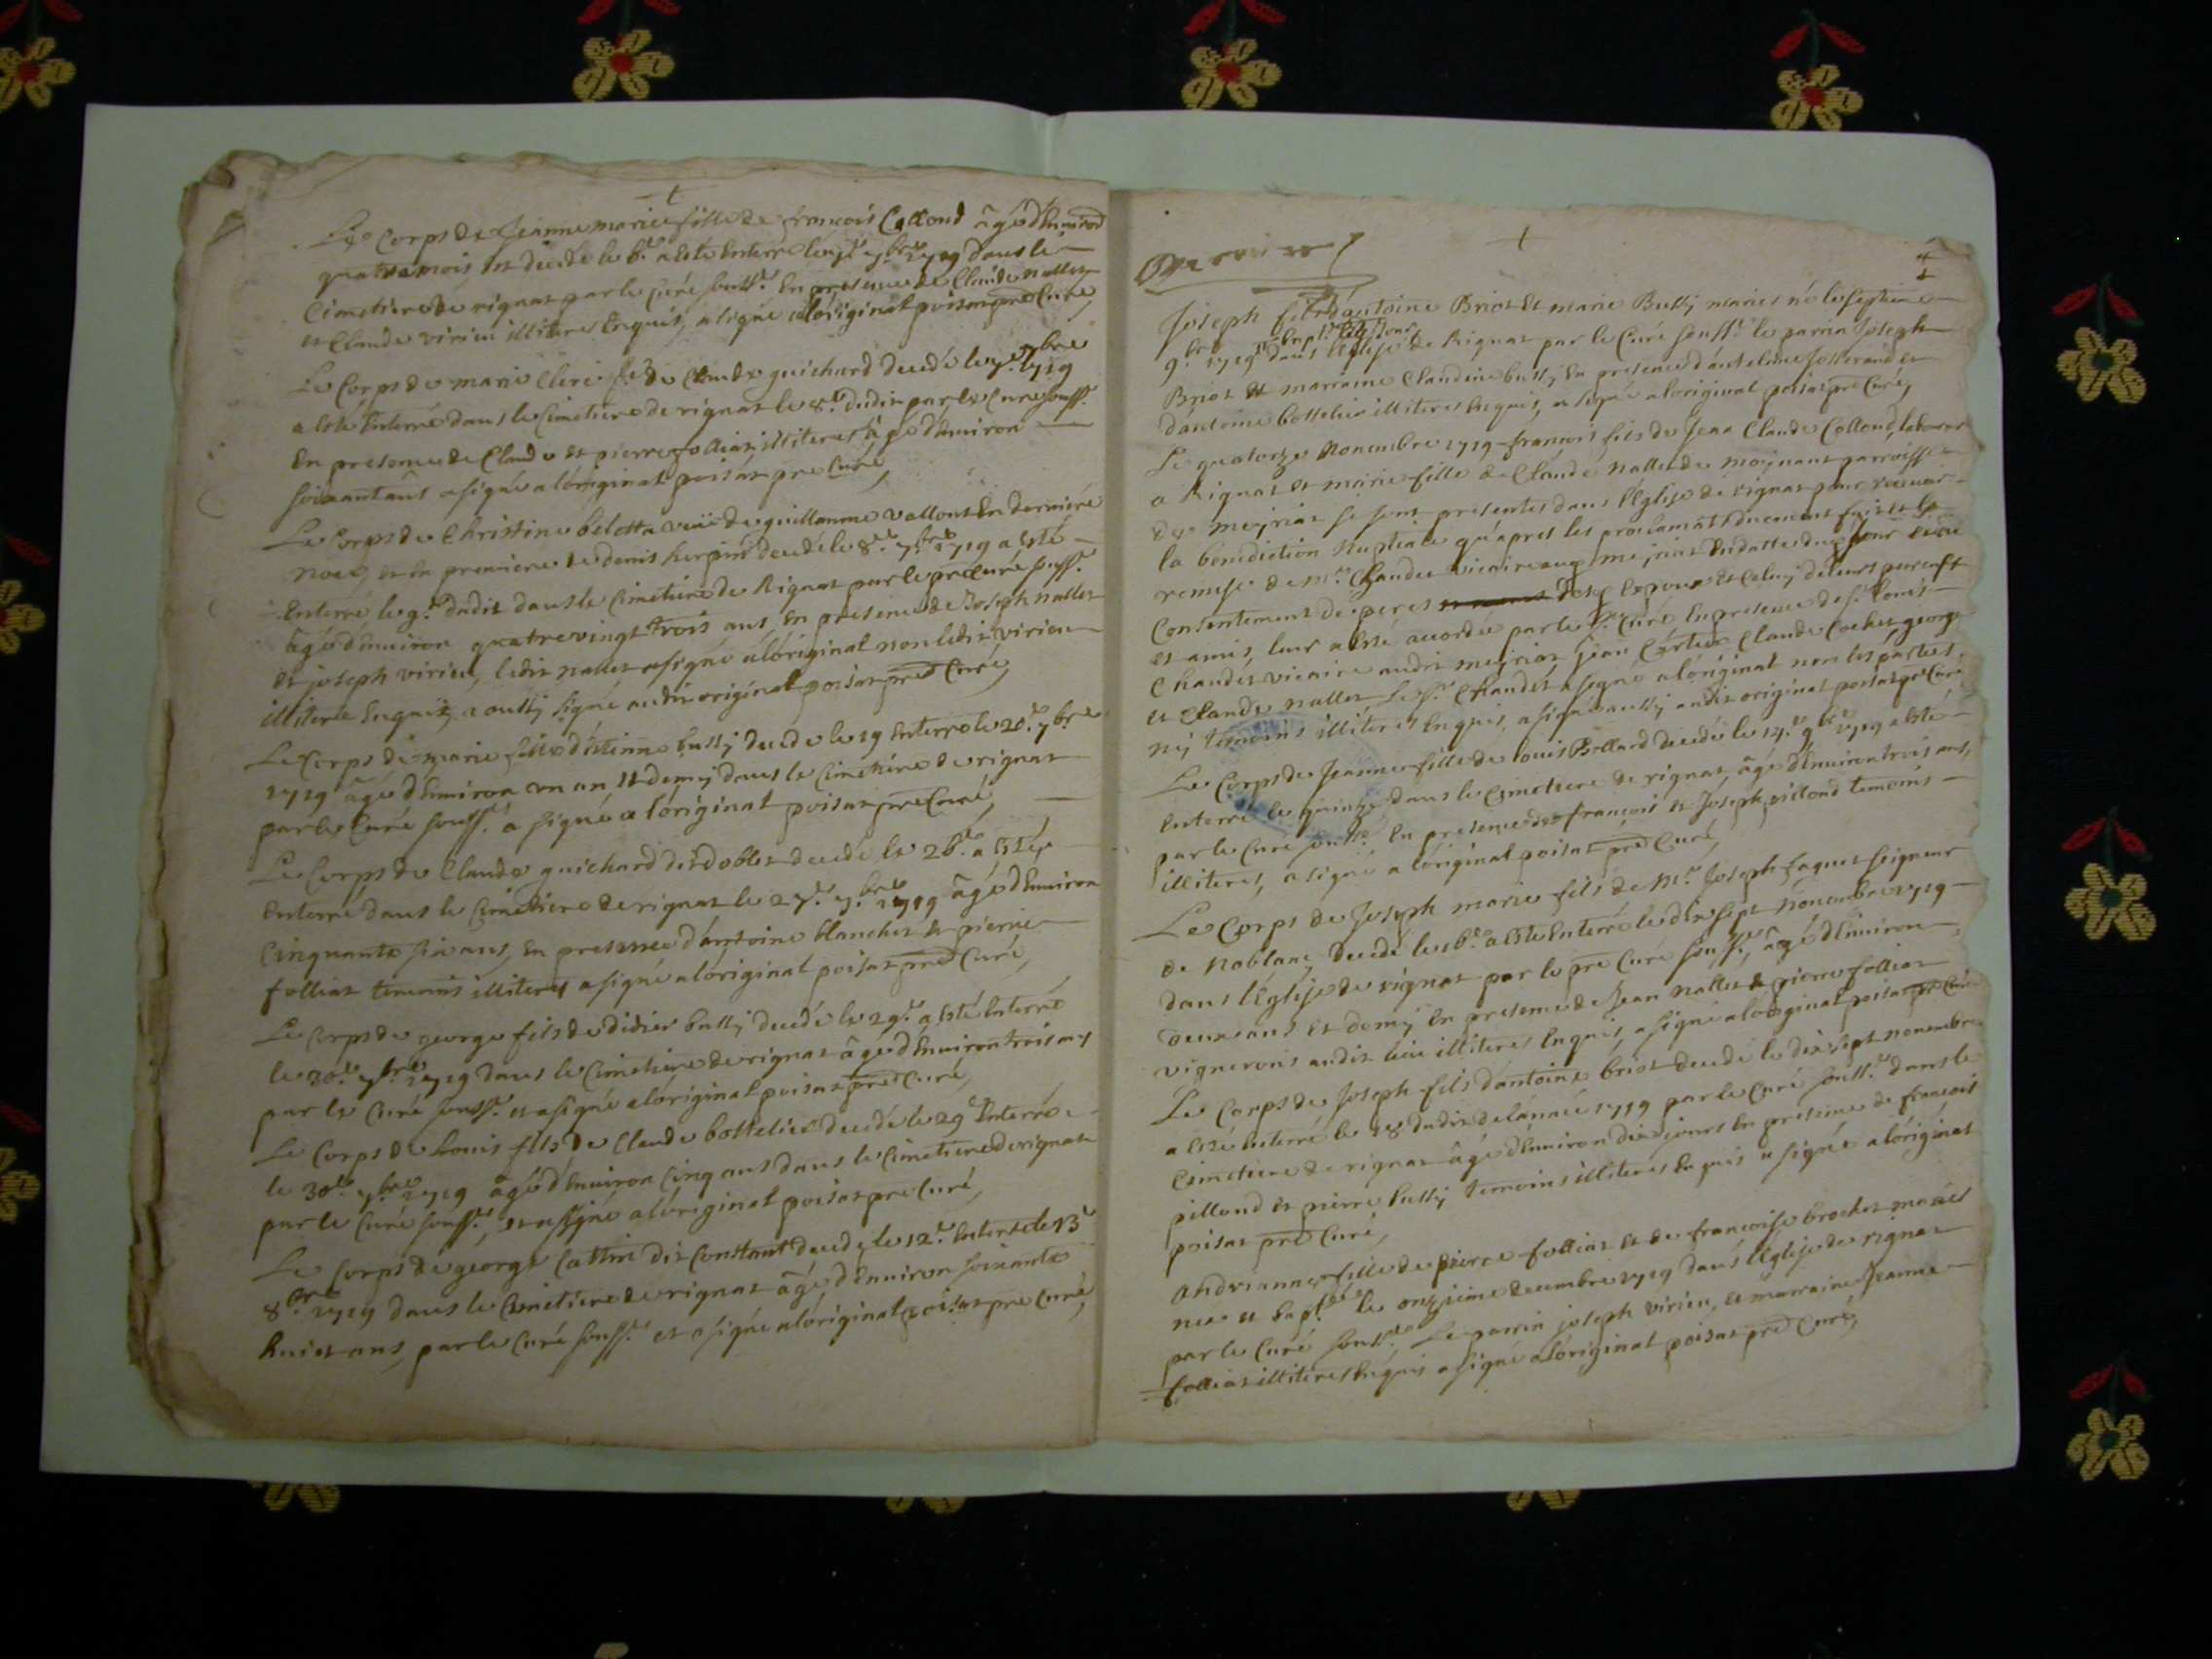 Le Corps de Jeanne marie fille de francois Collond âgé d'Environ
quatre mois, est decede le 6.e a esté Enterré le 7.e 7.bre 1719 dans le
Cimetiere de rignat par le Curé souss.é En presence de Claude nallet
et Claude virieu illiteres Enquis, a signé a lóriginal poisat pre Curé,
Le Corps de marie Clere f.e de Claude guichard decedé le 7.e 7.bre 1719
a esté Enterré dans le Cimetiere de rignat le 8.e dudit par le Curé souss.é
En presence de Claude et pierre folliat illiteres âgé d'Environ
soixant âns a signé a lóriginal poisat pre Curé,
Le Corps de Christine beletta veüe de guillaume vallont En derniere
noce, et En premiere de denis herpin decedé le 8.e 7.bre 1719 a esté
Enterré le 9.e dudit dans le Cimetiere de Rignat par le pre Curé souss.é
âgé d'Environ quatrevingt trois ans, En presence de Joseph nallet
et joseph virieu, ledit nallet a signé a lóriginal non ledit virieu
illitere Enquis, a aussy signé audit original poisat pre Curé,
Le Corps de marie fille d'étienne bussy decede le 19 Enterré le 20.e 7.bre
1719 âgé d'Environ un an et demy dans le Cimetiere de rignat
par le Curé souss.é a signé a lóriginal poisat pre Curé,
Le Corps de Claude guichard dit doblet decedé le 26.e a esté
Enterré dans le Cimetiere de rignat le 27.e 7.bre 1719 âgé d'Environ
Cinquante six ans, En presence d'antoine blanchet et pierre
folliat temoins illiteres a signé a lóriginal poisat pre Curé,
Le Corps de george fils de didier bussy decedé le 29.e a esté Enterré
le 30.e 7.bre 1719 dans le Cimetiere de rignat âgé d'Environ trois ans
par le Curé souss.é et a signé a lóriginal poisat pre Curé,
Le Corps de Louis fils de Claude bottelier decedé le 29.e Enterré
le 30.e 7.bre 1719 âgé d'Environ Cinq ans dans le Cimetiere de rignat
par le Curé souss.é, et a signé a lóriginal poisat pre Curé,
Le Corps de george Cattin dit Constant decede le 12.e Enterré le 13.e
8.bre 1719 dans le Cimetiere de rignat âgé d'Environ soixante
huict ans, par le Curé souss.é et a signé a lóriginal poisat pre Curé,
4
Joseph fils dántoine Briot Et marie Bussy mariés né le septieme
9.bre 1719 dans l'Eglise de Rignat par le Curé souss.é le parrin Joseph
Briot et marraine Claudine bussy En presence d'antelme Josserand et
dántoine bottelier illiteres Enquis, a signé a loriginal poisat pre Curé,
Le quatorze Nouembre 1719 francois fils de Jean Claude Collond, laboureur
a Rignat et marie fille de Claude nallet de moynant parroisse
de meyriat se sont presentés dans l'Eglise de rignat pour receuoir
la bénediction Nuptiale qu'apres les proclamat.
remise de M.re Chandet vicaire
Consentement de peres Espoux et Celuy de leurs parents
et amis, leur a esté accordée par le s.r Curé En presence de s.r Louis
Chandet vicaire audit meyriat, Jean Claude Cochet, george
et Claude nallet le s.r Chandet a signé a lóriginal non les parties
ny temoins illiteres Enquis, a signé aussy audit original poisat pre Curé
Le Corps de Jeanne fille de louis Bollard decedé le 14.e 9.bre 1719 a esté
Enterré le quinze dans le Cimetiere de rignat, âgé d'Environ trois ans,
par le Curé souss.é En presence de francois et Joseph pillond temoins
illiteres, a signé a lóriginal poisat pre Curé,
Le Corps de Joseph marie fils de M.re Joseph faguet seigneur
de Noblanc, decedé le 16.e a esté Enterré le dix sept nouembre 1719
dans l'Eglise de rignat par le pre Curé souss.é, âgé d'Environ
deux ans et demy En presence de Jean nallet & pierre folliat
vignerons audit lieu illiteres Enquis, a signé a lóriginal poisat pre Curé
Le Corps de Joseph fils d'antoine briot decedé le dix sept nouembre
a esté Enterré le 18 dudit de lánnée 1719 par le Curé souss.é dans le
Cimetiere de rignat âgé d'Environ dix jours En presence de francois
pillond et pierre bussy temoins illiteres Enquis a signé a lóriginal
poisat pre Curé,
Andrianne fille de pierre folliat et de francoise brochet mariés
née et bap.sée le onzieme decembre 1719 dans l'Eglise de rignat
par le Curé souss.é Le parrin joseph virieu, et marraine Jeanne
folliat illiteres Enquis a signé a lóriginal poisat pre Curé,